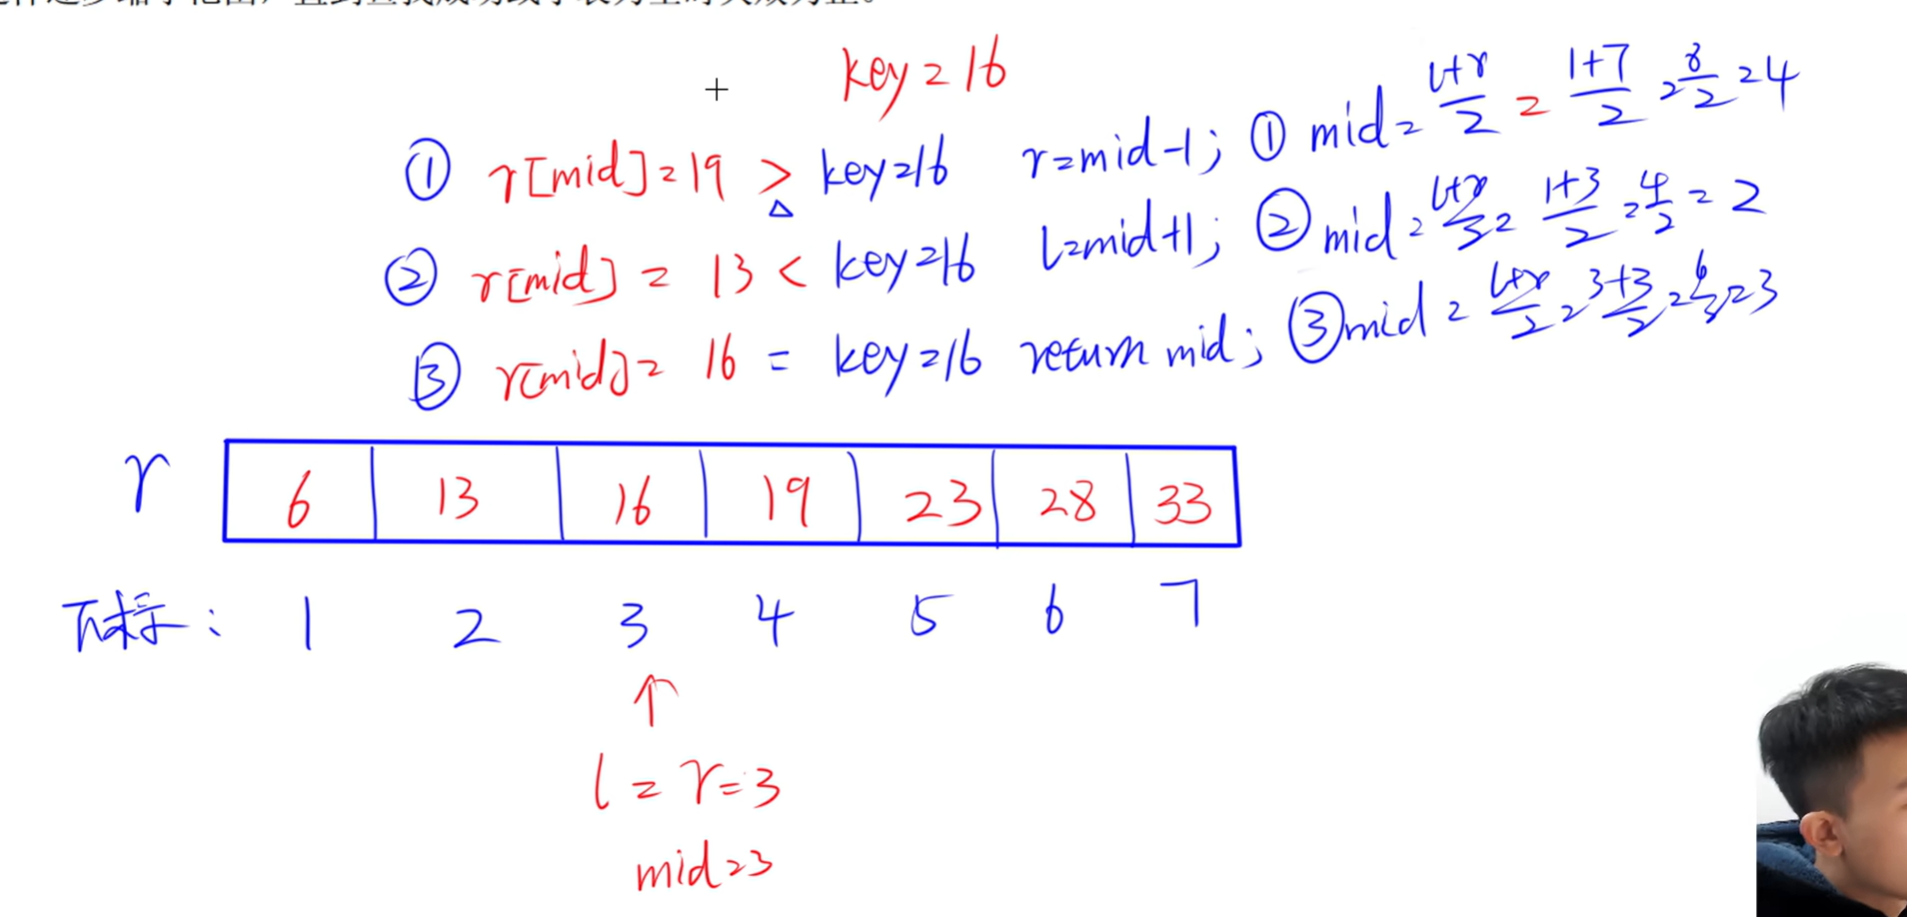 key=16
① r[mid]=19 > key=16 r=mid-1; ① mid=l+r/2=1+7/2=8/2=4
② r[mid]=13<key=16 l=mid+1; ② mid=l+r/2=1+3/2=4/2=2
③ r[mid]=16=key=16 return mid; ③ mid=l+r/2=3+3/2=6/2=3
r 6 13 16 19 23 28 33
下标: 1 2 3 4 5 6 7
↑
l=r=3
mid=3